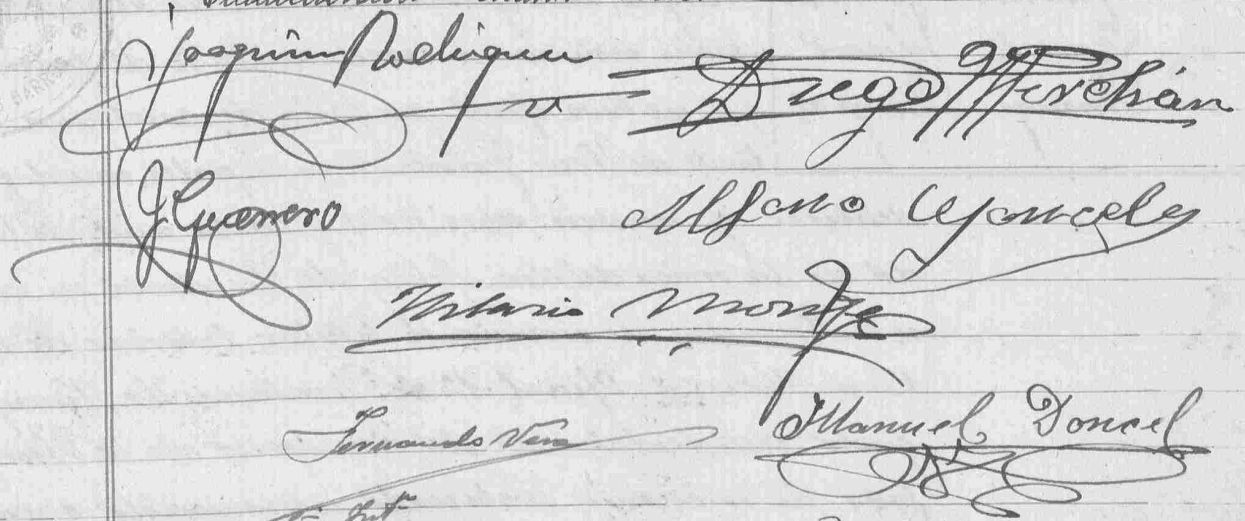 Joaquin Rodriguez Diego Merchán
J. Guerrero Alfonso Gonzalez
Hilario Monje
Fernando Vera Manuel Doncel